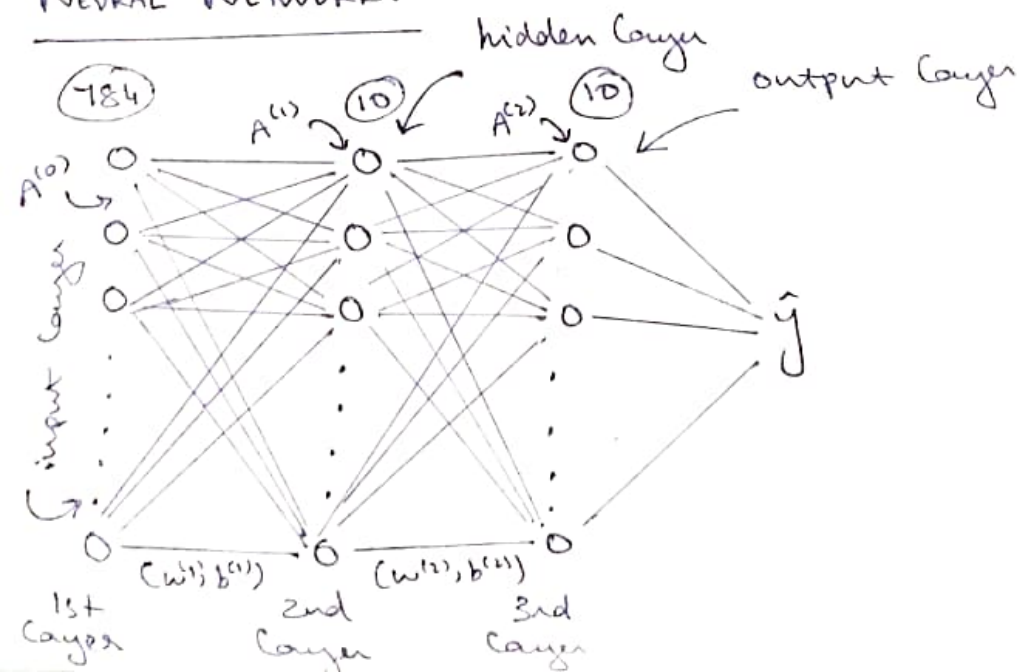 NEURAL NETWORK
hidden layer
output layer
784
10
10
A^(1)
A^(2)
A^(0)
input layer
ŷ
(w^(1), b^(1))
(w^(2), b^(2))
1st
layer
2nd
layer
3rd
layer